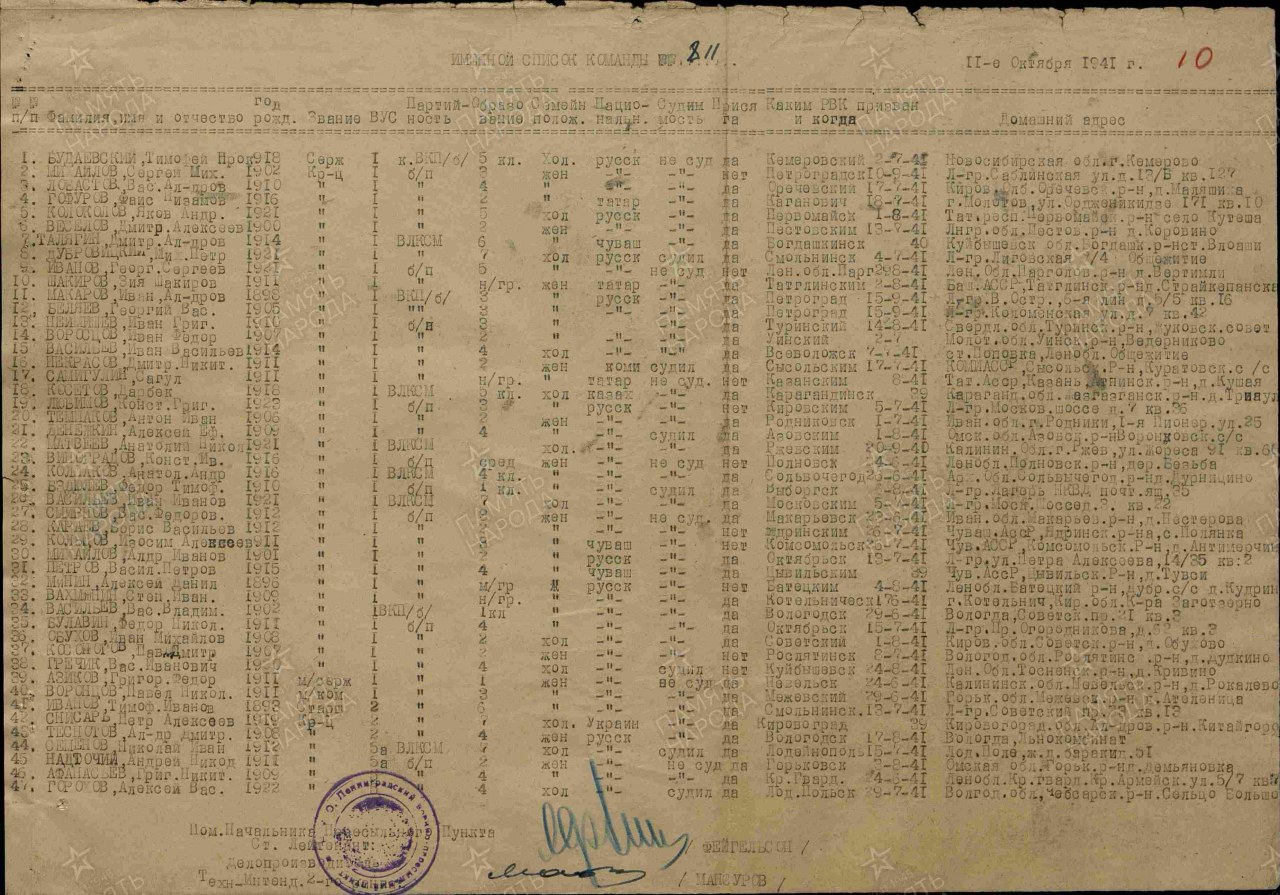 ИМЕННОЙ СПИСОК КОМАНДЫ №. 811 ... 11-е Октября 1941 г. 10
№№ год Партий- Образо Семейн Нацио- Судим Прися Каким РВК призван
п/п Фамилия,имя и отчество рожд. Звание ВУС ность вание полож. нальн. мость га и когда Домашний адрес
1. БУДАЕВСКИЙ,Тимофей Прок 918 Серж I к.ВКП/б/ 5 кл. Хол. русск не суд да Кемеровский 2-7-41 Новосибирская обл.г.Кемерово
2. МИХАЙЛОВ,Сергей Мих. 1902 Кр-ц I б/п 3 жен " -"- нет Петроградск 10-9-41 Л-гр.Саблинская ул.д.13/Б кв.127
3. ЛОБАСТОВ,Вас.Ал-дров 1910 " I " 4 " -"- -"- да Оречевский 17-7-41 Киров.Олб.Оречевск.р-н,д.Маляшиха
4. ГОФУРОВ,Фаис Низамов 1916 " I " 2 " татар -"- нет Каганович 18-7-41 г.Молотов,ул.Орджоникидзе 171 кв.10
5. КОЛОКОЛОВ,Яков Андр. 1921 " I " 5 хол русск -"- да Первомайск 1-8-41 Тат.респ.Первомайск.р-н село Кутеша
6. ВЕСЕЛОВ,Дмитр.Алексеев 1900 " I " 2 жен -"- -"- да Пестовским 13-7-41 Лнгр.обл.Пестов.р-н д.Коровино
7. ТАЛЯГИН,Дмитр.Ал-дров 1914 " I ВЛКСМ 6 " чуваш -"- да Богдашкинск 40 Куйбышевск обл.Богдашк.р-нст.Влоаши
8. ДУБРОВИЦКИЙ,Мих.Петр 1921 " I " 7 хол русск судил да Смольнинск 4-7-41 Л-гр.Лиговская 7/4 Общежитие
9. ИВАНОВ,Георг.Сергеев 1921 " I б/п 5 " -"- не суд нет Лен.обл.Парг 298-41 Лен.Обл.Парголов.р-н д.Вертимли
10. ШАКИРОВ,Зия Шакиров 1911 " I " н/гр. жен татар -"- да Татглинским 2-8-41 Баш.АССР,Татглинск.р-нд.Страйкепанска
11. МАКАРОВ,Иван,Ал-дров 1898 " I ВКП/б/ 3 " русск -"- да Петроград 15-9-41 Л-гр.В.Остр.,6-я лин д,5/5 кв.16
12. БЕЛЯЕВ,Георгий Вас. 1905 " I "" 3 " -"- -"- да Петроград 15-9-41 Л-гр.Коломенская ул.д.7 кв.42
13. Иван Григ. 1910 " I б/п 3 " -"- -"- да Туринский 14-8-41 Свердл.обл.Туринск.р-н,Жуковск.совет
14. ВОРОБЦОВ,Иван Федор 1907 " I " 2 " -"- -"- да Уинский 2-7 Молот.обл.Уинск.р-н,Ведерниково
15 ВАСИЛЬЕВ,Иван Васильев 1914 " I " 4 хол -"- "-"- да Всеволожск 7-7-41 ст.Поповка,Ленобл.Общежитие
16. НЕКРАСОВ,Дмитр.Никит. 1911 " I " 2 жен коми судил да Сысольским 17-7-41 КОМИАССР,Сысольск.Р-н,Куратовск.с/с
17. САПИГУЛИН,Загул 1911 " I " н/гр. " татар не суд. нет Казанским 8-41 Тат.Асср,Казань р-н,д.Кушая
18. КЕСЕТОВ,Дарбек 1918 " I ВЛКСМ 5 кл. хол казах -"- да Карагандинск 39 Караганд.обл.
19. ЛЮБИМОВ,Конст.Григ. 1923 " I б/п 3 " русск -"- нет Кировским 5-7-41 Л-гр.Москов.шоссе д.7 кв.36
20. ТЕПЛЯКОВ,Антон Иван 1906 " I " 2 жен -"- -"- да Родниковск 1-7-41 Иван.обл.г.Родники,1-я Пионер.ул.25
21. Алексей Еф. 1909 " I " 4 " -"- судил да Азовским 1-8-41 Омск.обл.Азовск.р-нВоронковск.с/с
22. МАТВЕЕВ,Анатолий Никол 1921 " I ВЛКСМ хол. -"- -"- да Ржевским 20-9-40 Калинин.обл.г.Ржев,ул.Жореса 91 кв.60
23. ВИНОГРАДОВ,Конст.Ив. 1916 " I б/п сред жен -"- не суд нет Полновск 4-6-41 Ленобл.Полновск.р-н,дер.Безьва
24. КОЛПАКОВ,Анатол.Андр 1916 " I ВЛКСМ 4 кл. " -"- -"- да Сольвочегод 25-6-41 Арх.Обл.Сольвычегод.р-нд.Дурницино
25. Федор Тимоф. 1910 " I б/п 1 кл. " -"- судил да Выборгск -8-41 Л-гр.Лагерь НКВД почт.ящ.35
26. ВАСИЛЬЕВ Иванов 1921 " I ВЛКСМ 7 хол -"- -"- да Московским 5-41 Л-гр.Моск.Шоссед.3. кв.22
27. СМИРНОВ,Вас.Федоров. 1912 " I б/п 2 жен -"- не суд да Макарьевск 41 Иван.обл.Макарьев.р-н,д.Нестерова
28. Борис Васильев 1912 " I " " " -"- нет Ядринским 26-7-41 Чуваш.АссР,Ядринск.р-на,с.Полянка
29. Алексеев 911 " I " 3 " чуваш -"- нет Комсомольск 41 Чув.АССР,Комсомольск.Р-н,д.Антимерчи
30. МИХАЙЛОВ,Алдр Иванов 1901 " I " " русск -"- да Октябрьск 13-7-41 Л-гр.ул.Петра Алексеева,14/35 кв:2
31. ПЕТРОВ,Васил.Петров 1915 " I " 4 " чуваш -"- да Цывильским 39 Чув.АссР,Цывильск.Р-н,д.Тувси
32. МИНИН,Алексей Данил 1896 " I " м/гр Ж русск -"- да Батецким 4-8-41 Ленобл.Батецкий р-н,дубр.с/с д.Кудрин
33. ВАХМЯНИН,Степ.Иван. 1909 " I " н/гр. " -"- -"- да Котельническ 176-41 г.Котельнич,Кир.обл.К-ра Заготзерно
34. ВАСИЛЬЕВ,Вас.Владим. 1902 " I ВКП/б/ 1кл " -"- -"- да Вологодск 29-6-41 Вологда,Советск.пр.21 кв.3
35. БУЛАВИН,Федор Никол. 1911 " I б/п 4 " -"- -"- да Октябрьск 15-7-41 Л-гр.Пр.Огородникова,д.52 кв.3
36. ОБУХОВ,Иван Михайлов 1908 " I " 2 хол -"- -"- да Советский 1-8-41 Киров.обл.Советск.р-н,д.Обухово
37. КОСОНОГОВ,Пав.Дмитр 1907 " I " 2 жен -"- -"- нет Рослятинск 8-7-41 Вологод.обл.Рослятинс.р-н,д.Дудкино
38. ГРЕЧИК,Вас.Иванович 1920 " I " 4 хол -"- судил нет Куйбышевск 24-8-41 Лен.Обл.Тосненск.р-н,д.Кривино
39. АЗИКОВ,Григор.Федор 1911 м/серж I " 1 жен -"- не суд да Невельск 24-6-41 Калининск.обл.Невельск.р-н,д.Рокалево
40. ВОРОНЦОВ,Павел Никол. 1911 м/ком I " 3 " -"- -"- да Межевский 29-6-41 Горьк.обл.Межевск.р-н,д.Ателеница
41. ИВАНОВ,Тимоф.Иванов 1893 Старш 2 " 6 " -"- -"- да Смольнинск.13-7-41 Л-гр.Советский пр.73 кв.13
42. СНИСАРЬ,Петр Алексеев 1919 Кр-ц 2 " 7 хол. Украин -"- да Кировоград 39 Кировоград.обл.Ал-дров.р-н.Китайгоро
43. ТЕСНОТОВ,Ал-др Дмитр. 1908 " 2 " 4 жен русск -"- да Вологодск 17-8-41 Вологда,Льнокомбинат
44. СЕМЕНОВ,Николай Иван 1912 " 5а ВЛКСМ 7 хол -"- судил да Лодейнополь 15-7-41 Лод.Поле,ж.д.баракид.51
45. НАДТОЧИЙ,Андрей Никод 1911 " 5а б/п 2 жен -"- не суд да Горьковск 3-8-41 Омская обл.Горьк.р-нд.Демьяновка
46. АФАНАСЬЕВ,Григ.Никит. 1909 " " 4 " -"- -"- да Кр.Гвард. 24-6-41 Ленобл.Кр.гвард.Кр.Армейск.ул.5/7 кв7
47. ГОРОХОВ,Алексей Вас. 1922 " " 4 хол -"- судил да Лод.Польск 29-7-41 Волгод.обл,Чебсарск.р-н.Сельцо Большо
Пом.Начальника Пересыльного Пункта
Ст. Лейтенант: / ФЕЙГЕЛЬСОН /
Делопроизводитель
Техн-Интенд.2-го / МАНСУРОВ /